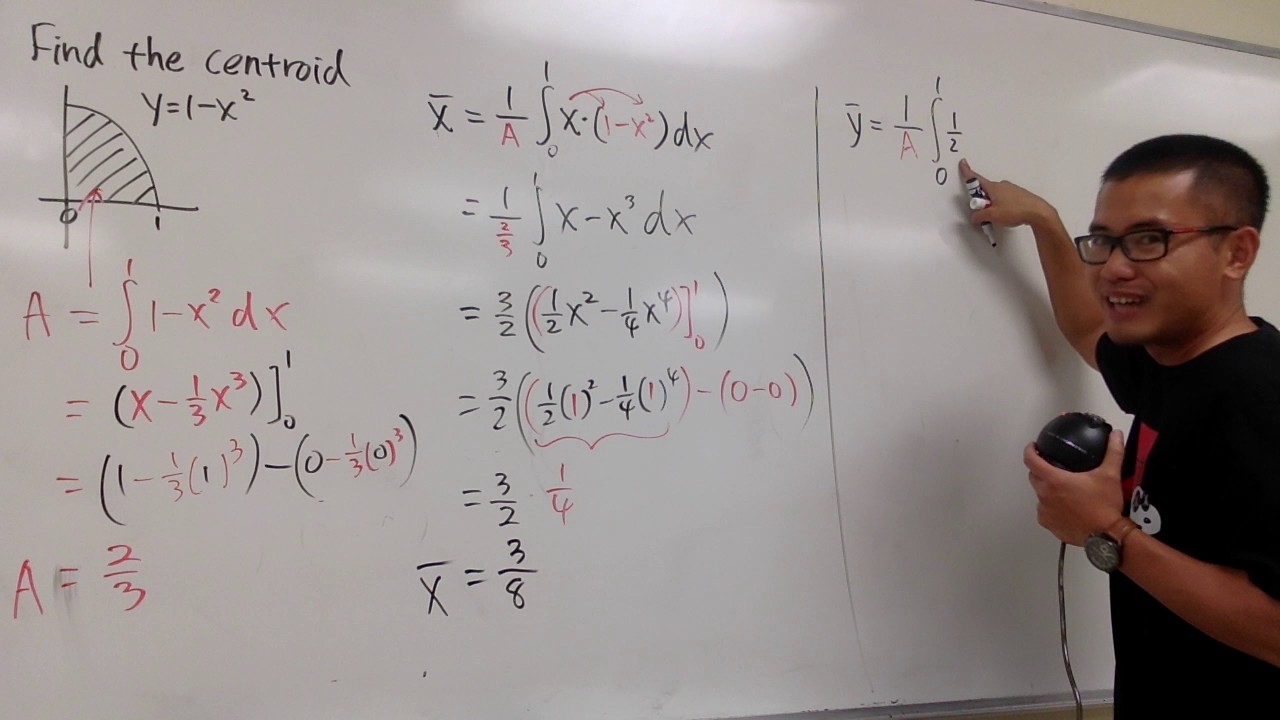 Find the centroid
y=1-x²
0 1
A = ∫₀¹ 1-x² dx
= (x-⅓x³)]₀¹
= (1-⅓(1)³)-(0-⅓(0)³)
A = 2/3
x̄ = 1/A ∫₀¹ x·(1-x²)dx
= 1/(2/3) ∫₀¹ x-x³ dx
= 3/2 ((½x²-¼x⁴)]₀¹)
= 3/2 ((½(1)²-¼(1)⁴)-(0-0))
= 3/2 · 1/4
x̄ = 3/8
ȳ = 1/A ∫₀¹ 1/2